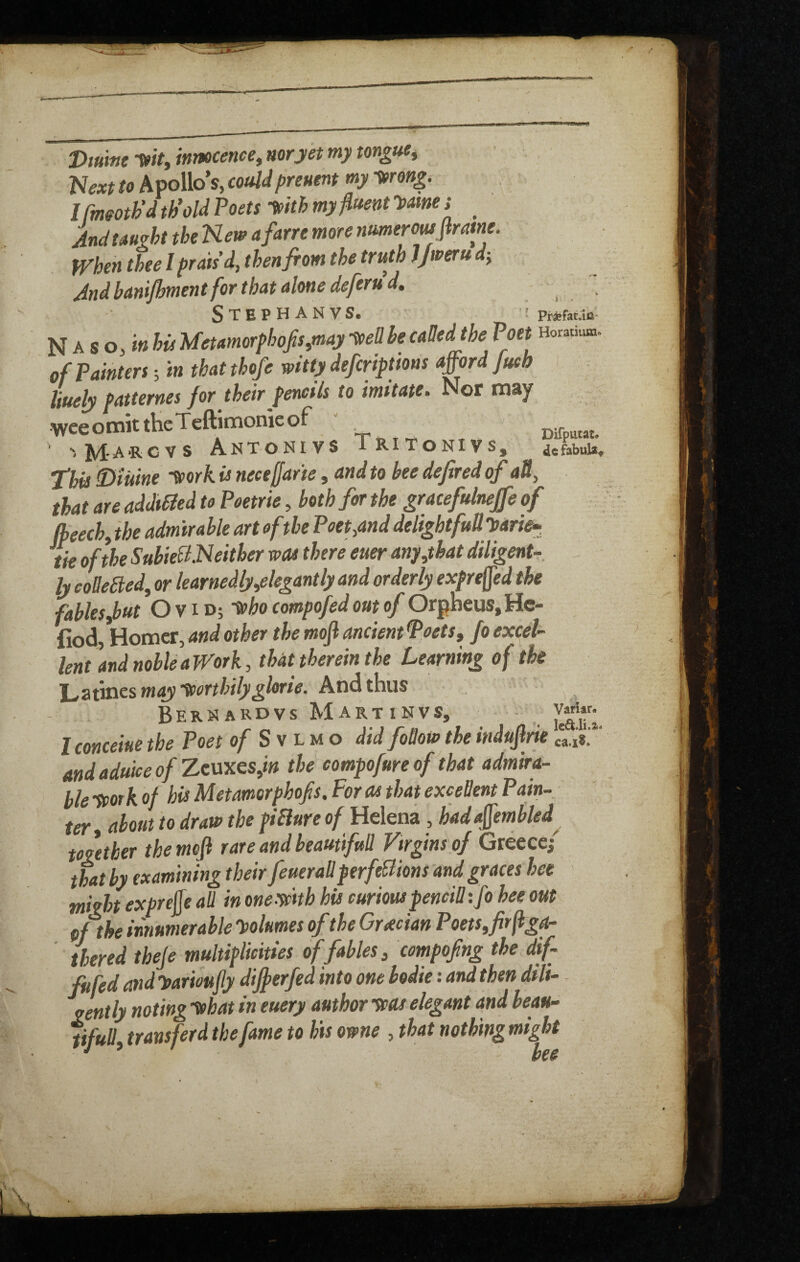 Diuine wit, innocence, nor yet my tongue,
Next to Apollo's, could preuent my wrong.
I smooth'd th'old Poets with my fluent vaine;
And taught the New a farre more numerous straine.
When thee I prais'd, then from the truth I sweru'd;
And banishment for that alone deseru'd.
STEPHANVS.
Præfat.in
Horatium.
NASO, in his Metamorphosis, may well be called the Poet
of Painters; in that those witty descriptions afford such
liuely patternes for their pencils to imitate. Nor may
wee omit the Testimonie of
MARCVS ANTONIVS TRITONIVS,
Disputat.
de fabula.
This Diuine work is necessarie, and to bee desired of all,
that are addicted to Poetrie, both for the gracefulnesse of
speech, the admirable art of the Poet, and delightfull varie-
tie of the Subiect. Neither was there euer any, that diligent-
ly collected, or learnedly, elegantly and orderly expressed the
fables, but OVID; who composed out of Orpheus, He-
siod, Homer, and other the most ancient Poets, so excel-
lent and noble a Work, that therein the Learning of the
Latines may worthily glorie. And thus
BERNARDVS MARTINVS,
Variar.
lect.li.2.
ca.18.
I conceiue the Poet of SVLMO did follow the industrie
and aduice of Zeuxes, in the composure of that admira-
ble work of his Metamorphosis. For as that excellent Pain-
ter, about to draw the picture of Helena, had assembled
together the most rare and beautifull Virgins of Greece;
that by examining their seuerall perfections and graces hee
might expresse all in one with his curious pencill: so hee out
of the innumerable volumes of the Græcian Poets, first ga-
thered these multiplicities of fables, composing the dif-
fused and variously dispersed into one bodie: and then dili-
gently noting what in euery author was elegant and beau-
tifull, transferd the same to his owne, that nothing might
bee